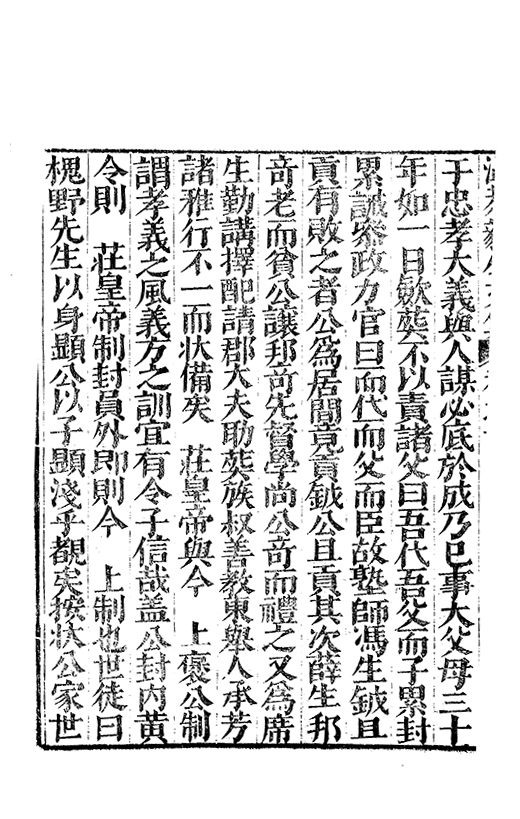 于忠孝大義與人謀必底於成乃已事大父母三十
年如一日歛塟不以責諸父曰吾代吾父而子累封
累誡叅政力官曰而代而父而臣故塾師馮生鉞且
貢有敗之者公為居間竟貢鉞公且貢其次薛生邦
竒老而貧公讓邦竒先督學尚公竒而禮之又為席
生勤講擇配請郡大夫助塟族叔善教東舉人承芳
諸雅行不一而狀備矣　荘皇帝與今　上褒公制
謂孝義之風義方之訓宜有令子信哉蓋公封内黄
令則　荘皇帝制封員外郎則今　上制也世徒曰
槐野先生以身顯公以子顯淺乎覩矣按狀公家世